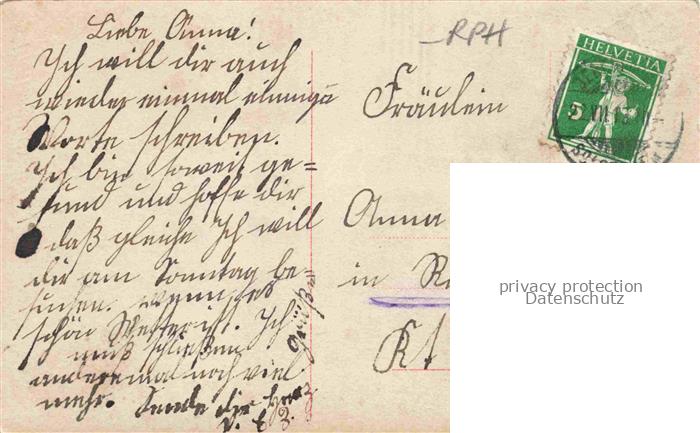 Liebe Anna!
Ich will dir auch
wieder einmal einnige
Worte schreiben.
Ich bin soweit ge=
sund und hoffe dir
daß gleiche Ich will
dir am Sonntag be=
suchen. wenn es
schön Wetter ist. Ich
muß schließen
anderemal noch viel
mehr. Sende dir
Grüße
RPH
HELVETIA
5
Fräulein
Anna
in
Kt
privacy protection
Datenschutz